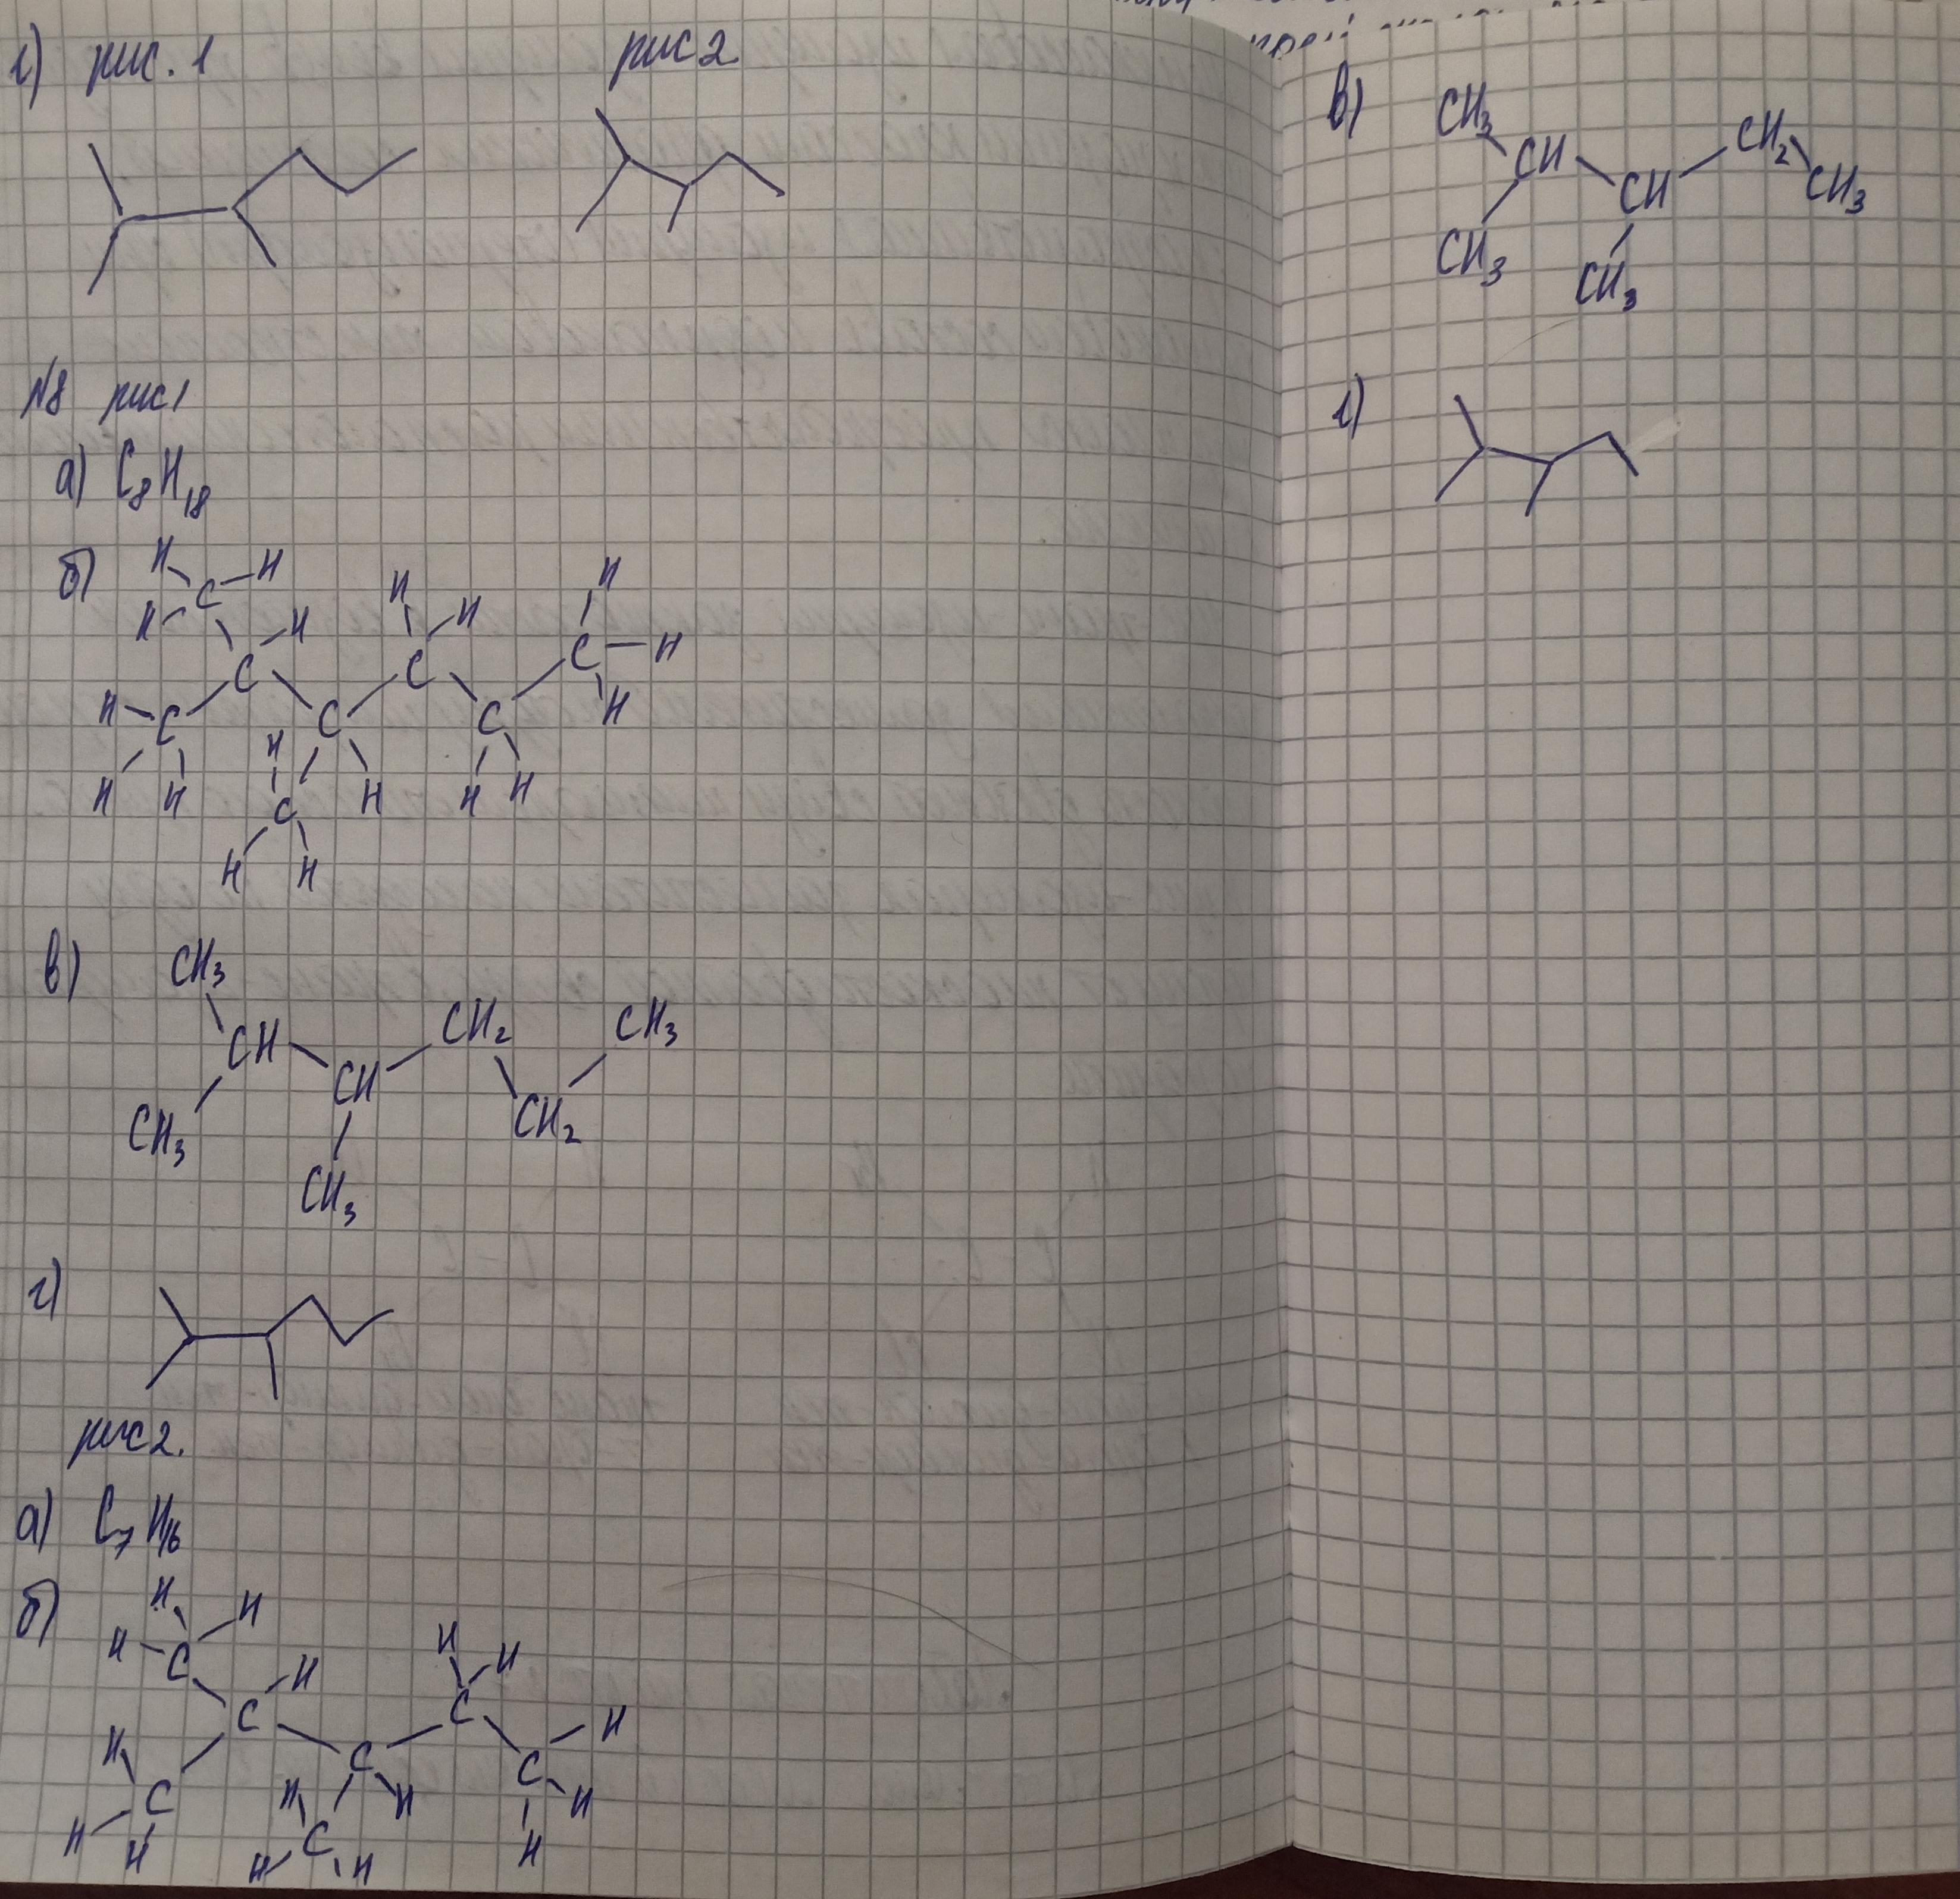 г) рис. 1 рис 2
№8 рис 1
а) C₈H₁₈
б)
H H
C
H H
H H
H
C
C
C H
H C C C H
H
H H H H H
C
H H
в) CH₃
CH₂ CH₃
CH
CH
CH₃ CH₂
CH₃
г)
рис 2.
а) C₇H₁₆
б) H H
H H H
C H
C C H
H C C
C H H H
H C H
H H H
в) CH₃ CH₂
CH CH CH₃
CH₃ CH₃
г)